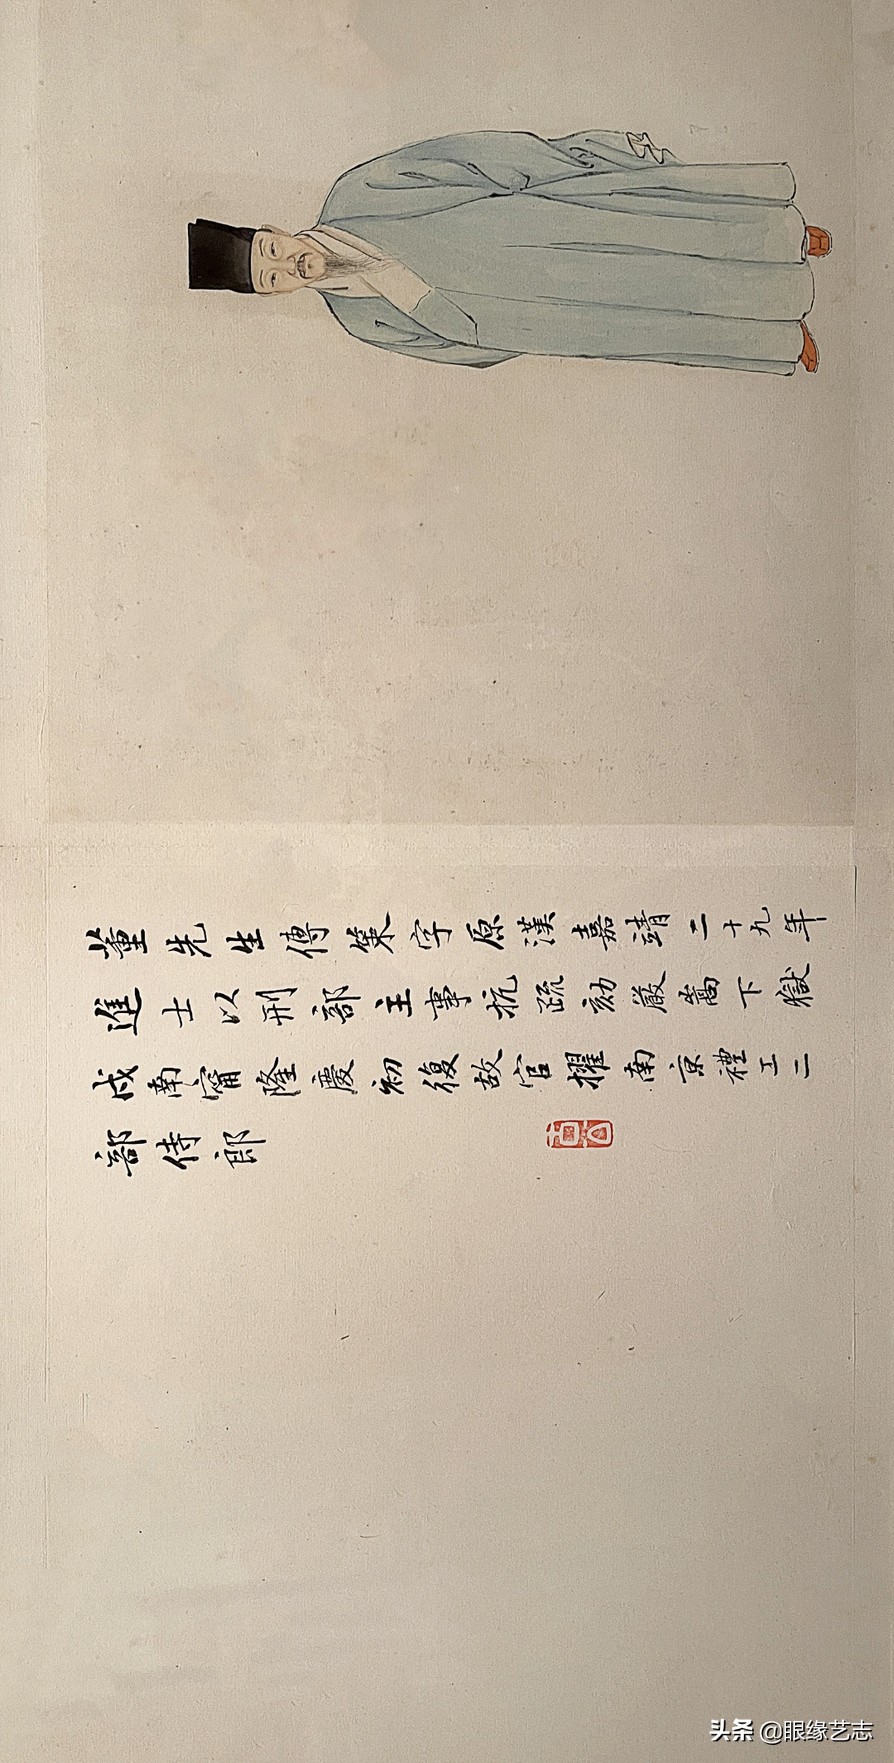 董先生傳策字原漢嘉靖二十九年
進士以刑部主事抗疏劾嚴嵩下獄
戍南甯隆慶初復故官擢南京禮工二
部侍郎
头条 @眼缘艺志